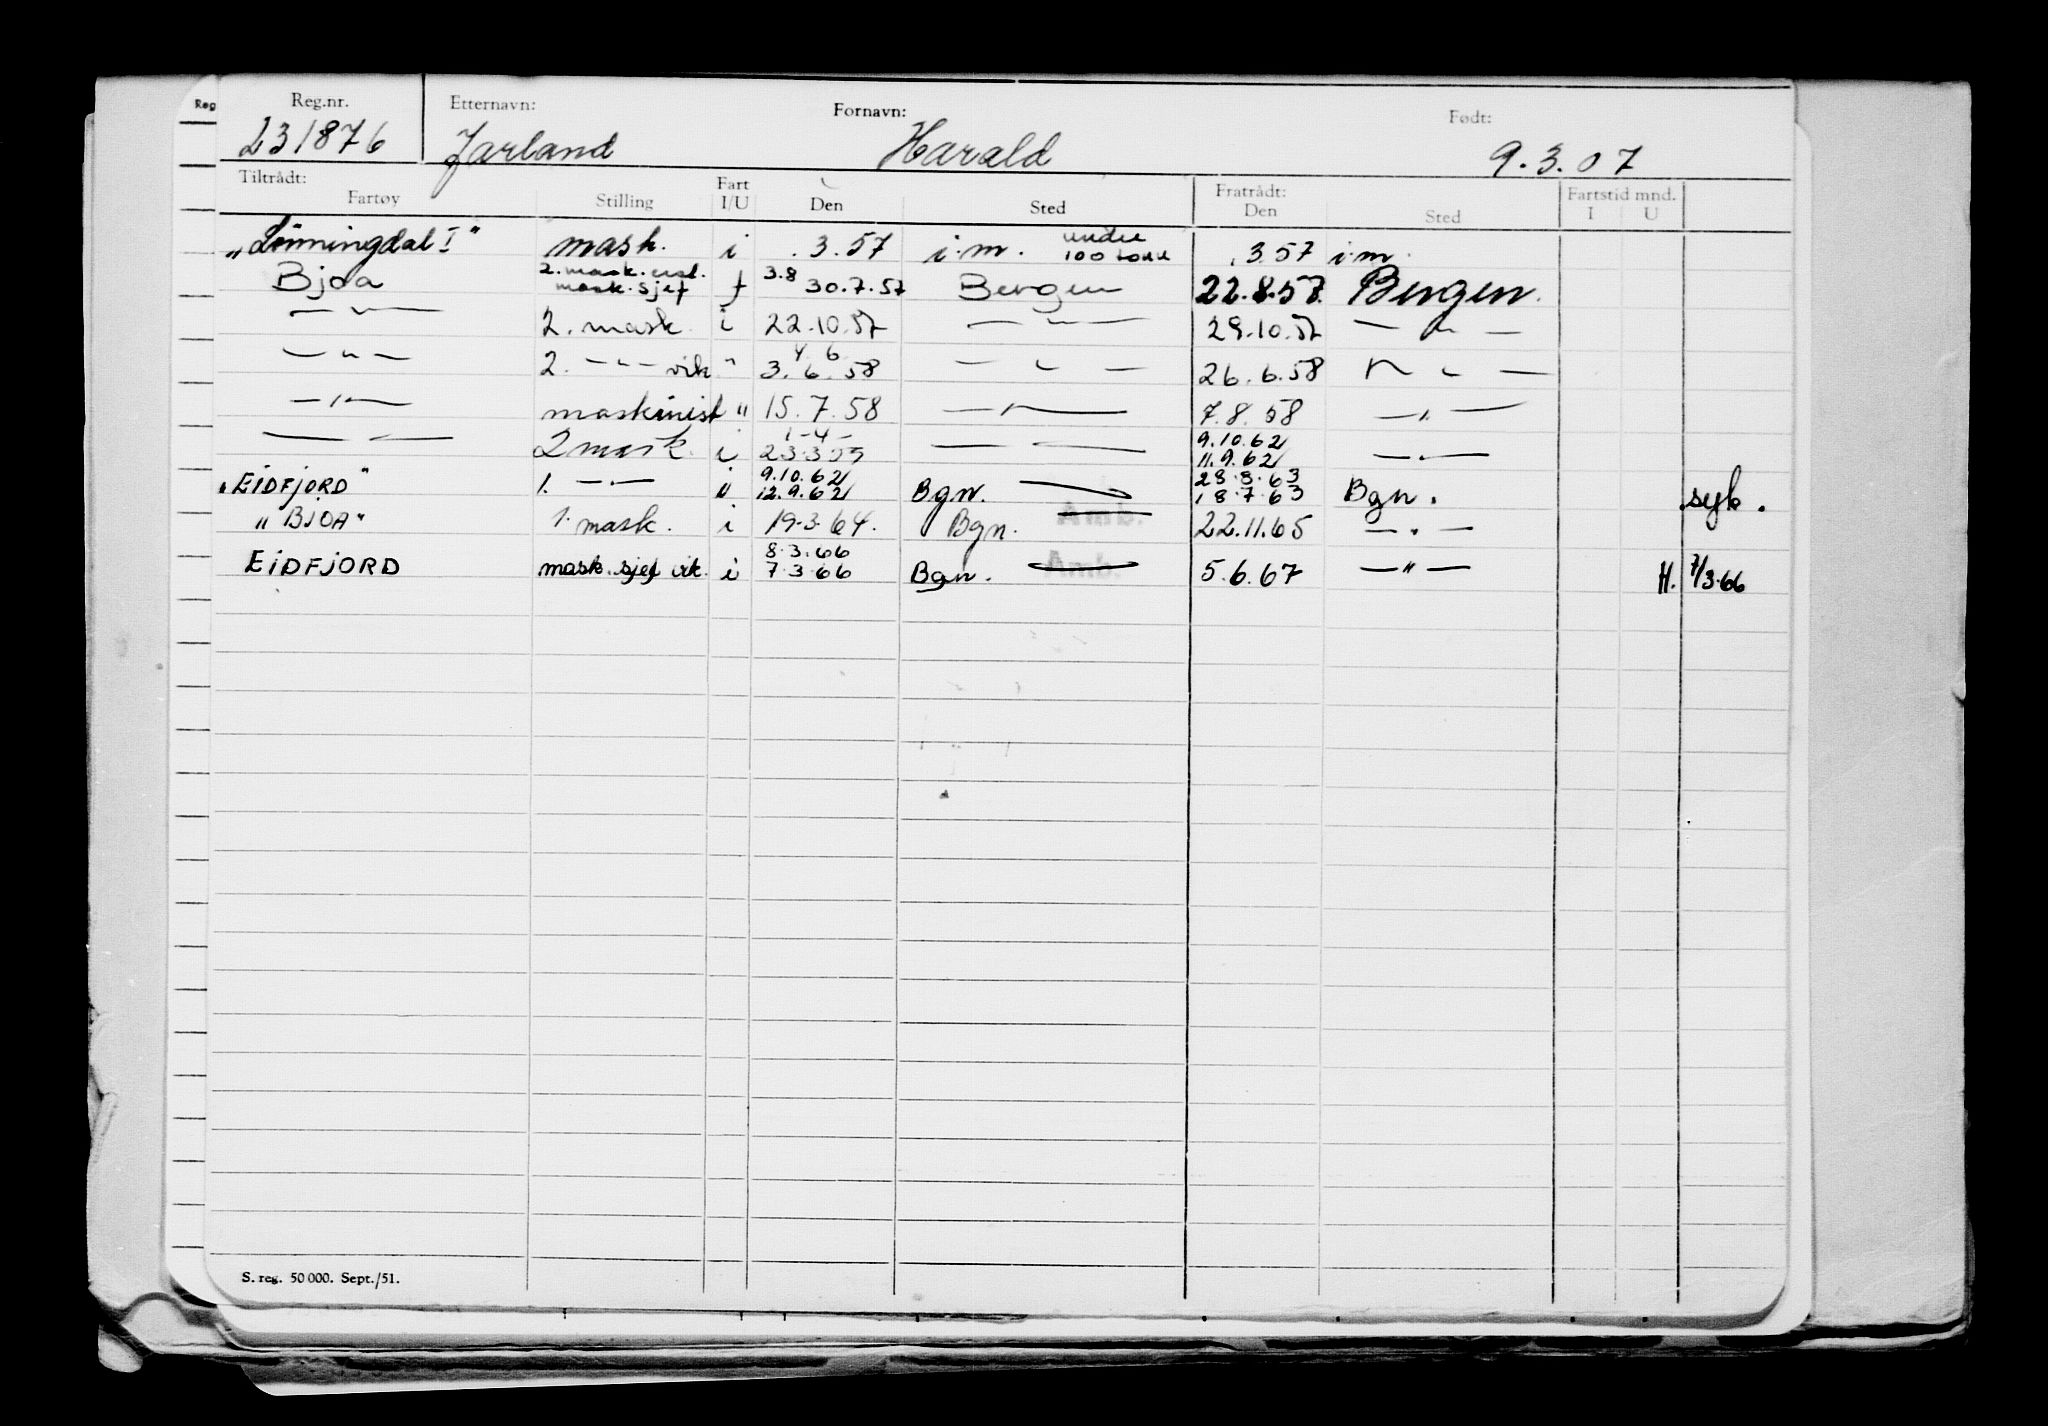 Reg
Reg.nr. Etternavn: Fornavn: Født:
231876 Jarland Harald 9.3.07
Tiltrådt: Fratrådt: Fartstid mnd.
Fartøy Stilling Fart I/U Den Sted Den Sted I U
"Lönningdal I" mask. i .3.57 i.m. under 100 tonn .3.57 i.m.
Bjoa 2. mask. mask. sjef f 3.8 30.7.57 Bergen 22.8.57 Bergen.
— " — 2. mask. i 22.10.57 — " — 29.10.57 — " —
— " — 2. — " — vik " 4 6 3.6.58 — " — 26.6.58 — " —
— " — maskinist " 15.7.58 — " — 7.8.58 — " —
— — 2 mask. i 1-4- 23.3.59 — — 9.10.62 11.9.62 — " —
"EIDFJORD" 1. — " — i 9.10.62 12.9.62 Bgn. 28.8.63 18.7.63 Bgn. syk.
"BJOA" 1. mask. i 19.3.64. Bgn. Amb. 22.11.65 — " —
EIDFJORD mask. sjef vik. i 8.3.66 7.3.66 Bgn. Amb. 5.6.67 — " — H. 7/3.66
S. reg. 50 000. Sept./51.